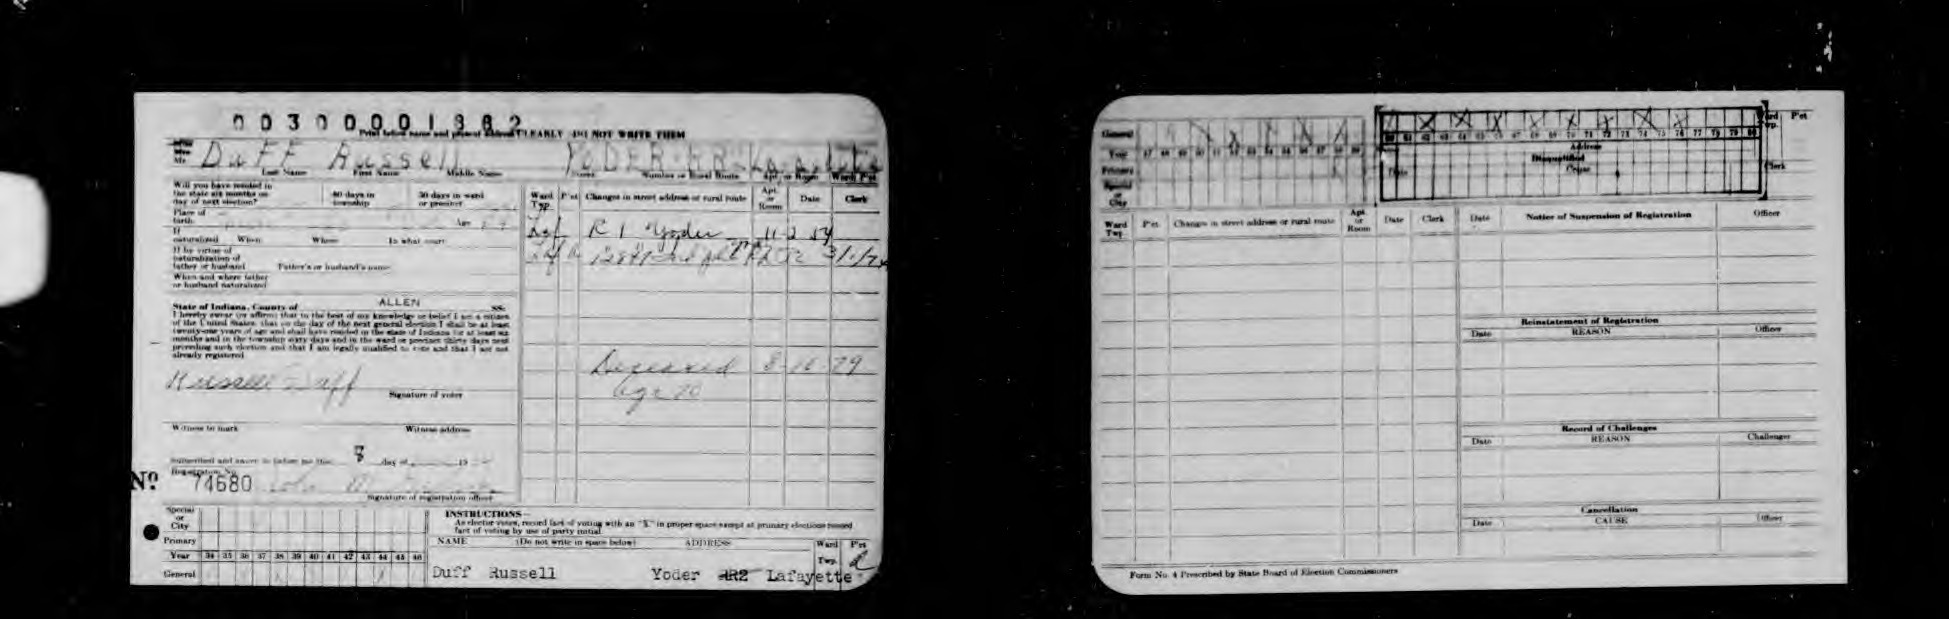 00300001882
Print below name and present address CLEARLY DO NOT WRITE THEM
Duff Russell YODER RR
Mr. Last Name First Name Middle Name Street Number or Rural Route Apt. or Room Ward P'ct
Will you have resided in the state six months on day of next election? 60 days in township 30 days in ward or precinct
Place of birth Age
If naturalized When Where In what court
If by virtue of naturalization of father or husband Father's or husband's name
When and where father or husband naturalized
State of Indiana, County of ALLEN SS:
I hereby swear (or affirm) that to the best of my knowledge or belief I am a citizen
of the United States, that on the day of the next general election I shall be at least
twenty-one years of age and shall have resided in the state of Indiana for at least six
months and in the township sixty days and in the ward or precinct thirty days next
preceding such election and that I am legally qualified to vote and that I am not
already registered
Russell Duff
Signature of voter
Witness to mark Witness address
Subscribed and sworn to before me this 8 day of 19
Registration No.
No. 74680
Signature of registration officer
Ward Twp. P'ct Changes in street address or rural route Apt. or Room Date Clerk
Laf R 1 Yoder 11-2-54
Laf 3/1/74
Deceased 8-16-79
Age 70
Special or City
Primary
Year 34 35 36 37 38 39 40 41 42 43 44 45 46
General
INSTRUCTIONS—
As elector votes, record fact of voting with an "X" in proper space except at primary elections record
fact of voting by use of party initial
NAME (Do not write in space below) ADDRESS Ward Twp. P'ct
Duff Russell Yoder RR2 Lafayette 2
General
Year 47 48 49 50 51 52 53 54 55 56 57 58 59
Primary
Special or City
60 61 62 63 64 65 66 67 68 69 70 71 72 73 74 75 76 77 78 79 80
Ward Twp. P'ct
Address
Disqualified
Date Cause Clerk
Ward Twp. P'ct Changes in street address or rural route Apt. or Room Date Clerk
Date Notice of Suspension of Registration Officer
Reinstatement of Registration
Date REASON Officer
Record of Challenges
Date REASON Challenger
Cancellation
Date CAUSE Officer
Form No. 4 Prescribed by State Board of Election Commissioners